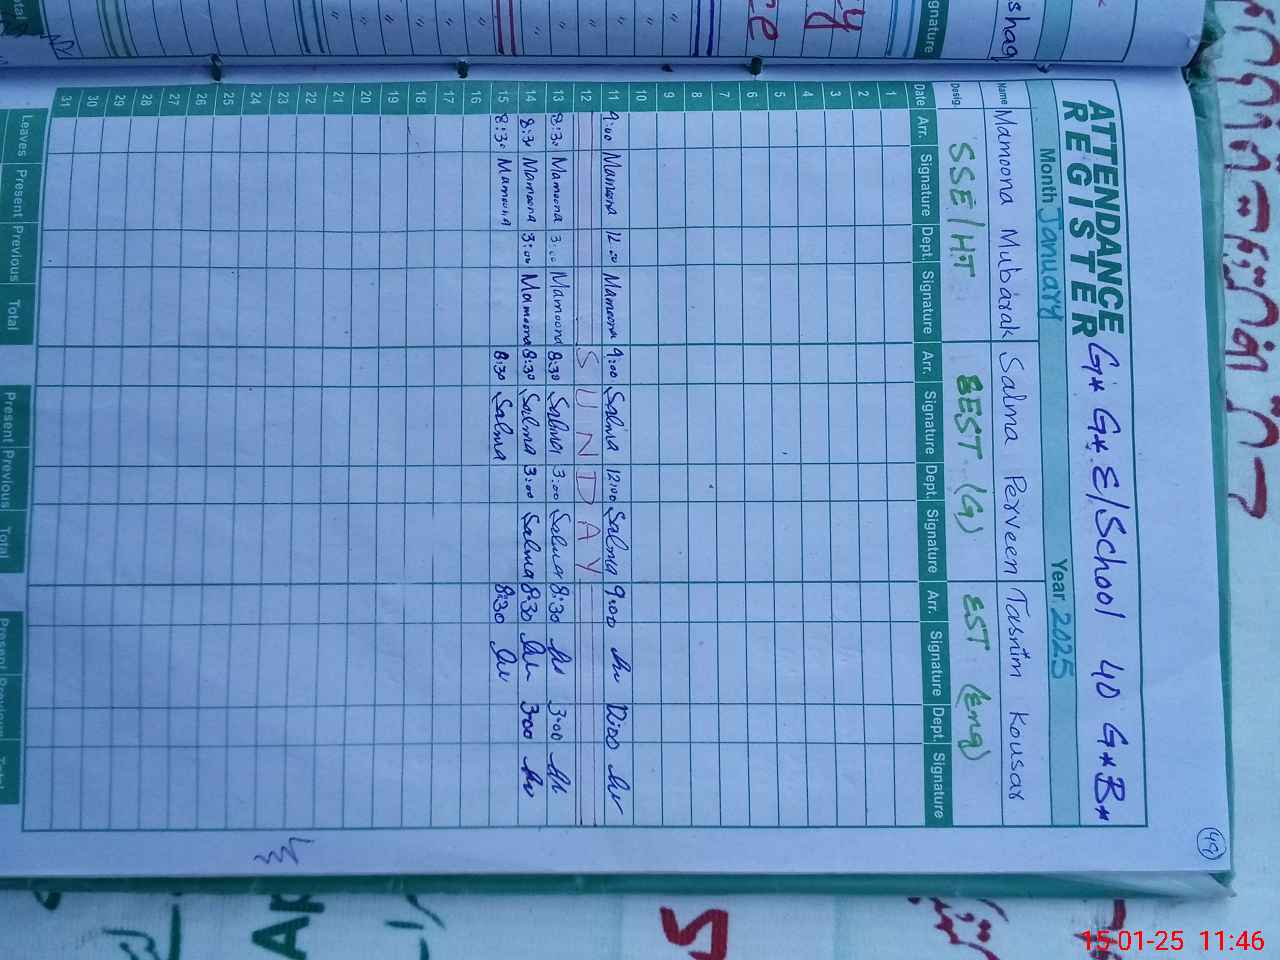 ATTENDANCE REGISTER
G* G*. E/School 40 G*B*
Month January Year 2025
Name Mamoona Mubarak Salma Perveen Tasnim Kousar
Desig. SSE/HT EST (G) EST (Eng)
Date Arr. Signature Dept. Signature Arr. Signature Dept. Signature Arr. Signature Dept. Signature
1
2
3
4
5
6
7
8
9
10
11 9:00 Mamoona 12:00 Mamoona 9:00 Salma 12:00 Salma 9:00 12:00
12 SUNDAY
13 8:30 Mamoona 3:00 Mamoona 8:30 Salma 3:00 Salma 8:30 3:00
14 8:30 Mamoona 3:00 Mamoona 8:30 Salma 3:00 Salma 8:30 3:00
15 8:30 Mamoona 8:30 Salma 8:30
16
17
18
19
20
21
22
23
24
25
26
27
28
29
30
31
Leaves Present Previous Total Present Previous Total Present Previous Total
49
15-01-25 11:46